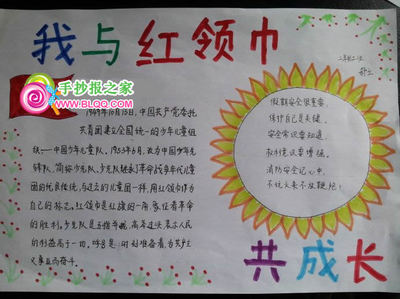 我与红领巾
二年级二班
手抄报之家
www.BLQQ.COM
1949年10月13日，中国共产党委托
共青团建立全国统一的少年儿童组
织——中国少年儿童队。1953年6月，改为中国少年先
锋队，简称少先队。少先队继承了革命战争年代儿童
团的优良传统，与过去的儿童团一样，用红领巾作为
自己的标志。红领巾是红旗的一角，象征着革命
的胜利。少先队是五指并拢，高举过头，表示人民
的利益高于一切。呼号是：时刻准备着，为共产主
义事业而奋斗。
假期安全很重要，
保护自己是关键。
安全常识要知道，
自护意识要增强。
消防安全记心中，
不玩火来不放鞭炮！
共成长